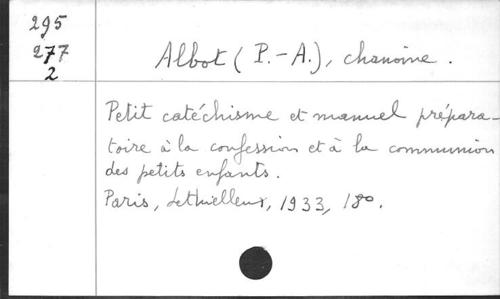 295
277
2
Albot (P.-A.), chanoine.
Petit catéchisme et manuel prépara-
toire à la confession et à la communion
des petits enfants.
Paris, Lethielleux, 1933, 18°.